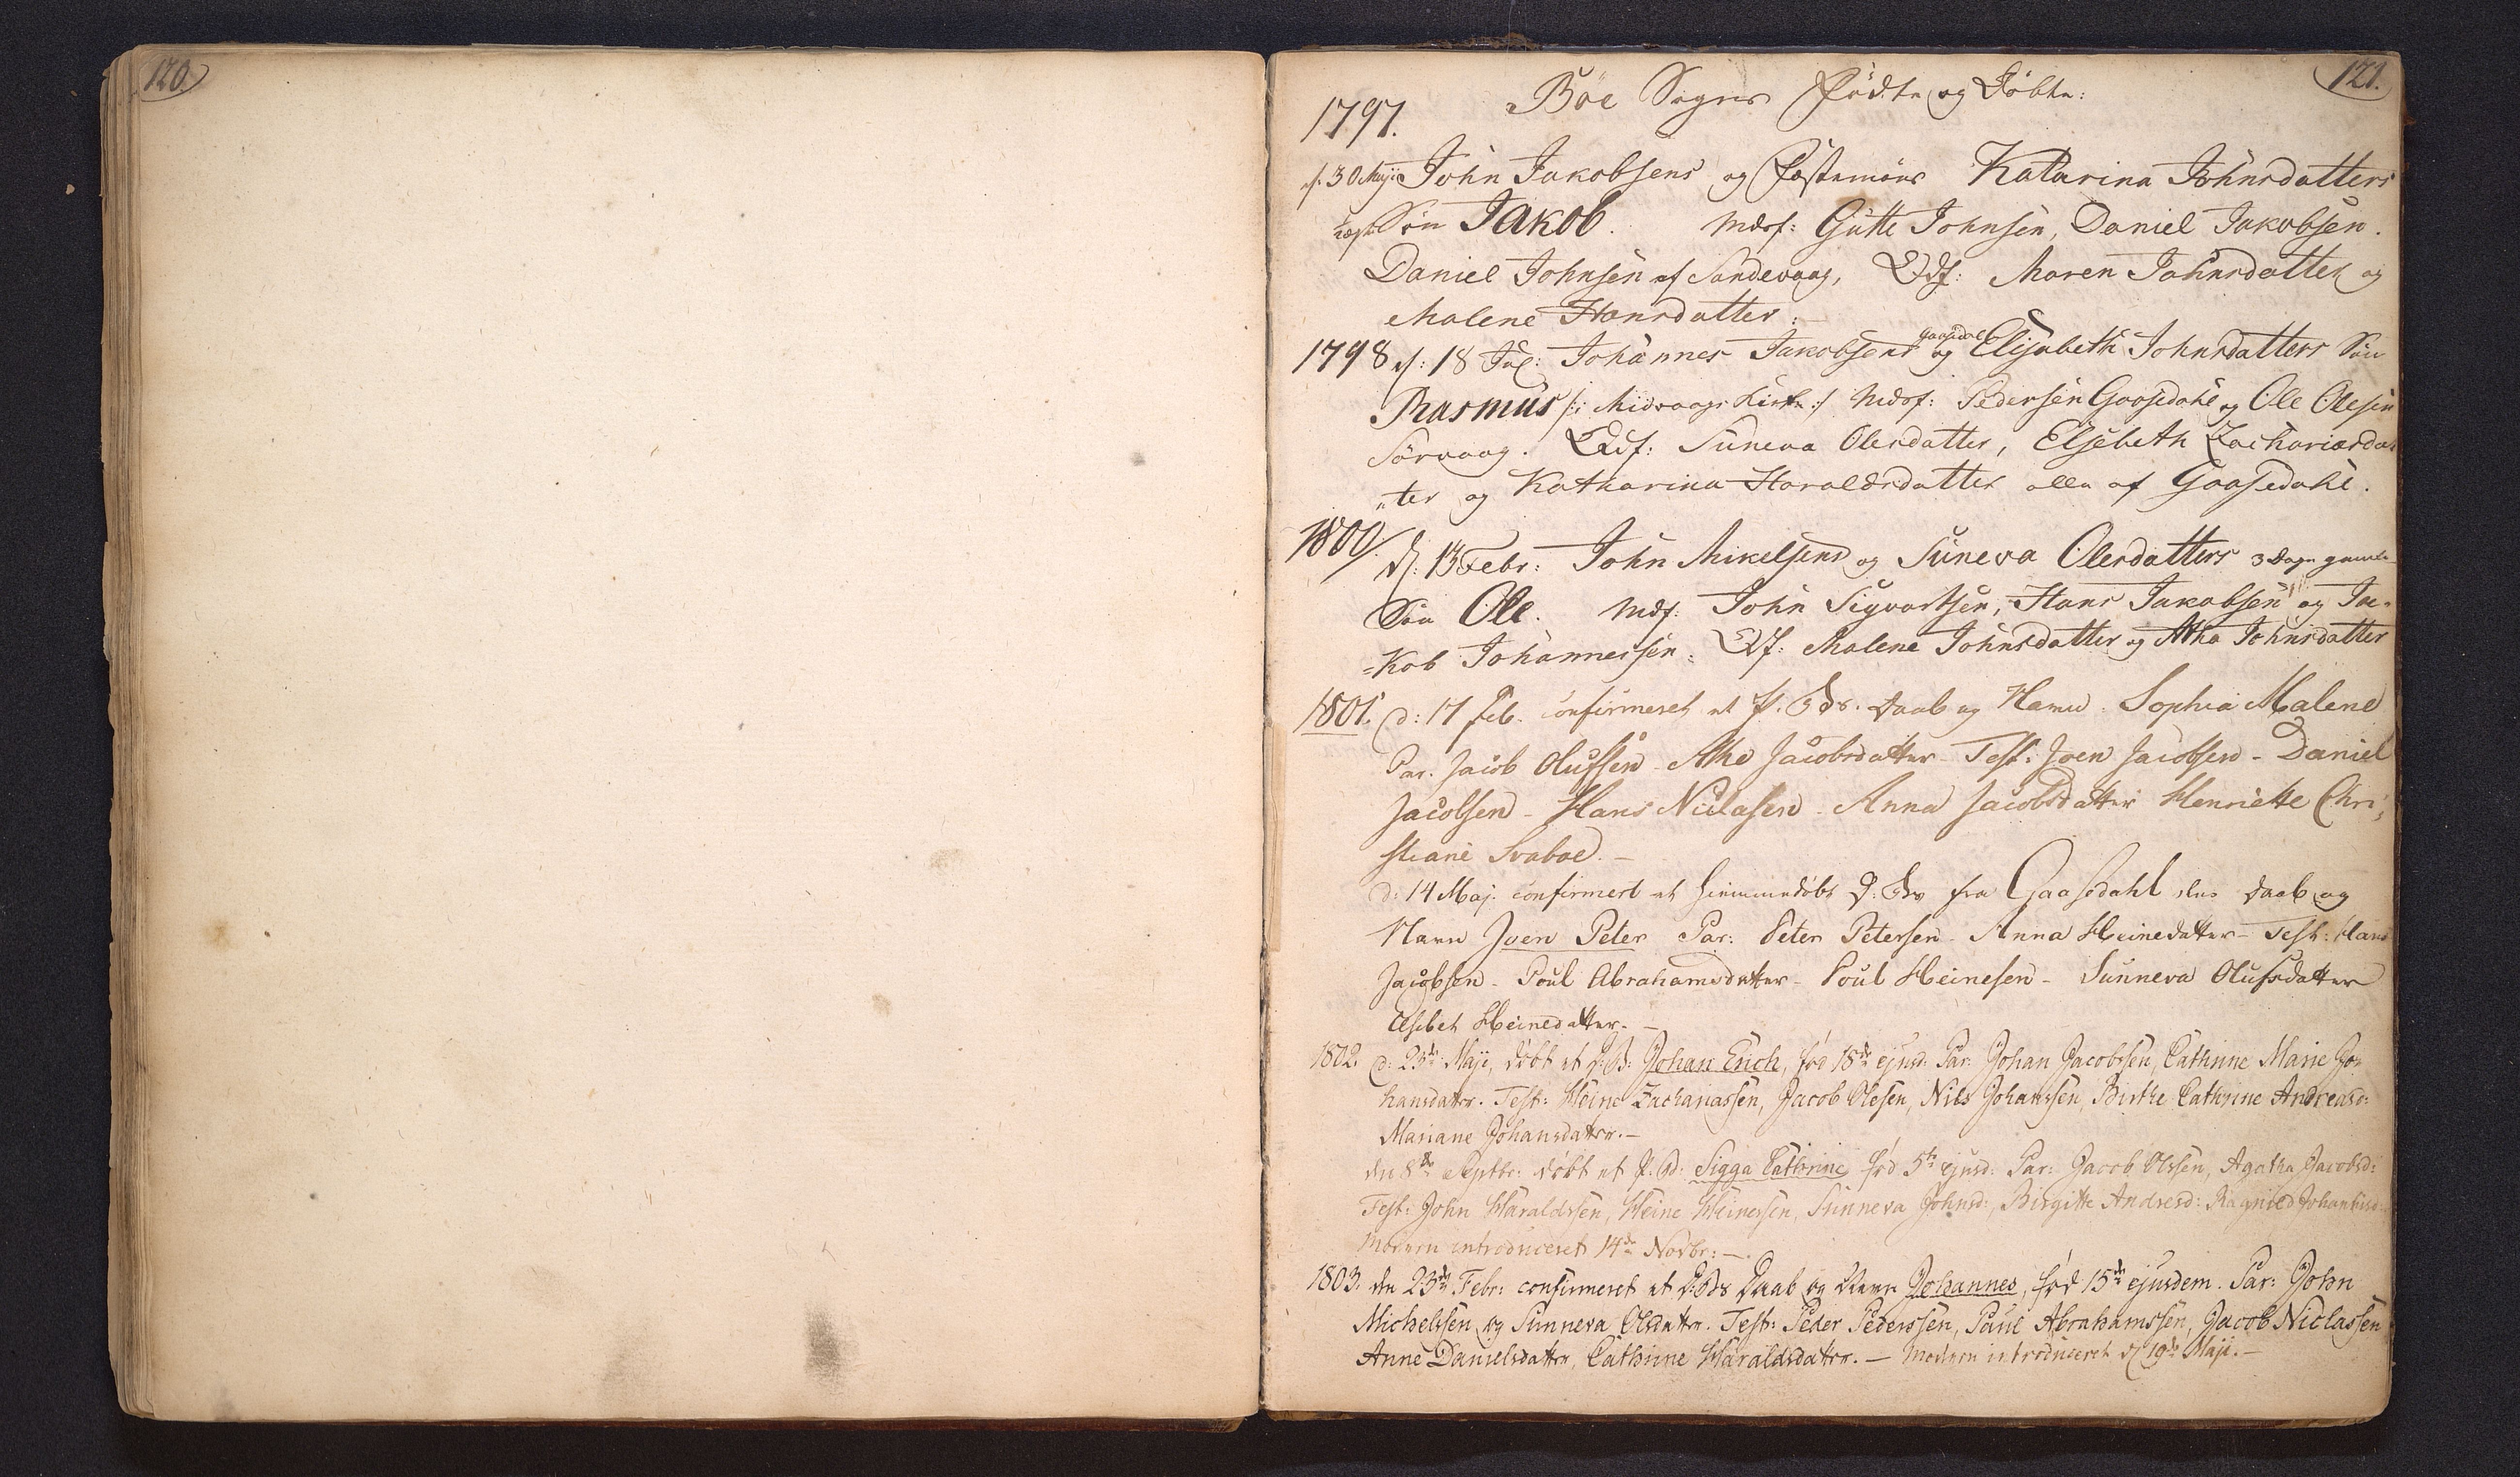 120.
121.
Böe Sogns Födte og Döbte:
1797.
d: 30 Maji John Jakobsens og Fæstemöes Katarina Johnsdatters
Sön Jakob. Mdsf: Gutte Johnsen, Daniel Jakobsen.
Daniel Johnsen af Sandevaag, Qdsf: Maren Johnsdatter og
Malene Hansdatter.
1798 d: 18 Jul: Johannes Jakobsens Gaasedal og Elisabeth Johnsdatters Sön
Rasmus /: i Midvaags Kirke :/ Mdsf: Pedersen Gaasedahl og Ole Olesen
Sörvaag. Qdsf: Suneva Olesdatter, Elsebeth Zachariasdat
ter og Katharina Haraldsdatter alle af Gaasedahl.
1800. d: 13 Febr: John Mikelsens og Suneva Olesdatters 3 Dage gamle
Sön Ole. Mdsf: John Sigvartsen, Hans Jakobsen og Ja=
=kob Johannessen. Qdf: Malene Johnsdatter og Atha Johnsdatter
1801. d: 17 Feb. confirmeret et P. Bs. Daab og Navn Sophia Malene
Par. Jacob Olufsen - Athe Jacobsdatter - Test: Joen Jacobsen - Daniel
Jacobsen - Hans Niclasen - Anna Jacobsdatter Henriette Chri;
stiane Svaboe. -
d: 14 Maj. confirmert et hiemmedöbt D: Bs fra Gaasedahl dens Daab og
Navn Joen Peter Par: Peter Petersen - Anna Heinedatter - Test: Hans
Jacobsen - Poul Abrahamsdatter - Poul Heinesen - Sunneva Olufsdatter
Elsebet Heinedatter. -
1802. d: 23de Maji, döbt et D: B: Johan Erich, föd 18de ejusd: Par: Johan Jacobsen, Cathrine Marie Jo-
hansdatter. Test: Heine Zachariassen, Jacob Olesen, Nils Johanssen, Birthe Cathrine Andreasd:
Mariane Johansdatter. -
den 8de Septbr: döbt et P. B: Sigga Cathrine föd 5te ejusd: Par: Jacob Olssen, Agatha Jacobsd:
Test: John Haraldssen, Heine Heinessen, Sunneva Johnsd:, Birgitte Andresd: Ragnild Johannesd:
Modern introduceret 14de Novbr: -.
1803. den 23de Febr: confirmeret et D: Bs Daab og Navn Johannes, föd 15de ejusdem. Par: John
Michelssen og Sunneva Olsdatter. Test: Peder Pederssen, Paul Abrahamssen, Jacob Niclassen
Anne Danielsdatter, Cathrine Haraldsdatter. - Modern introduceret d 19de Maji. -